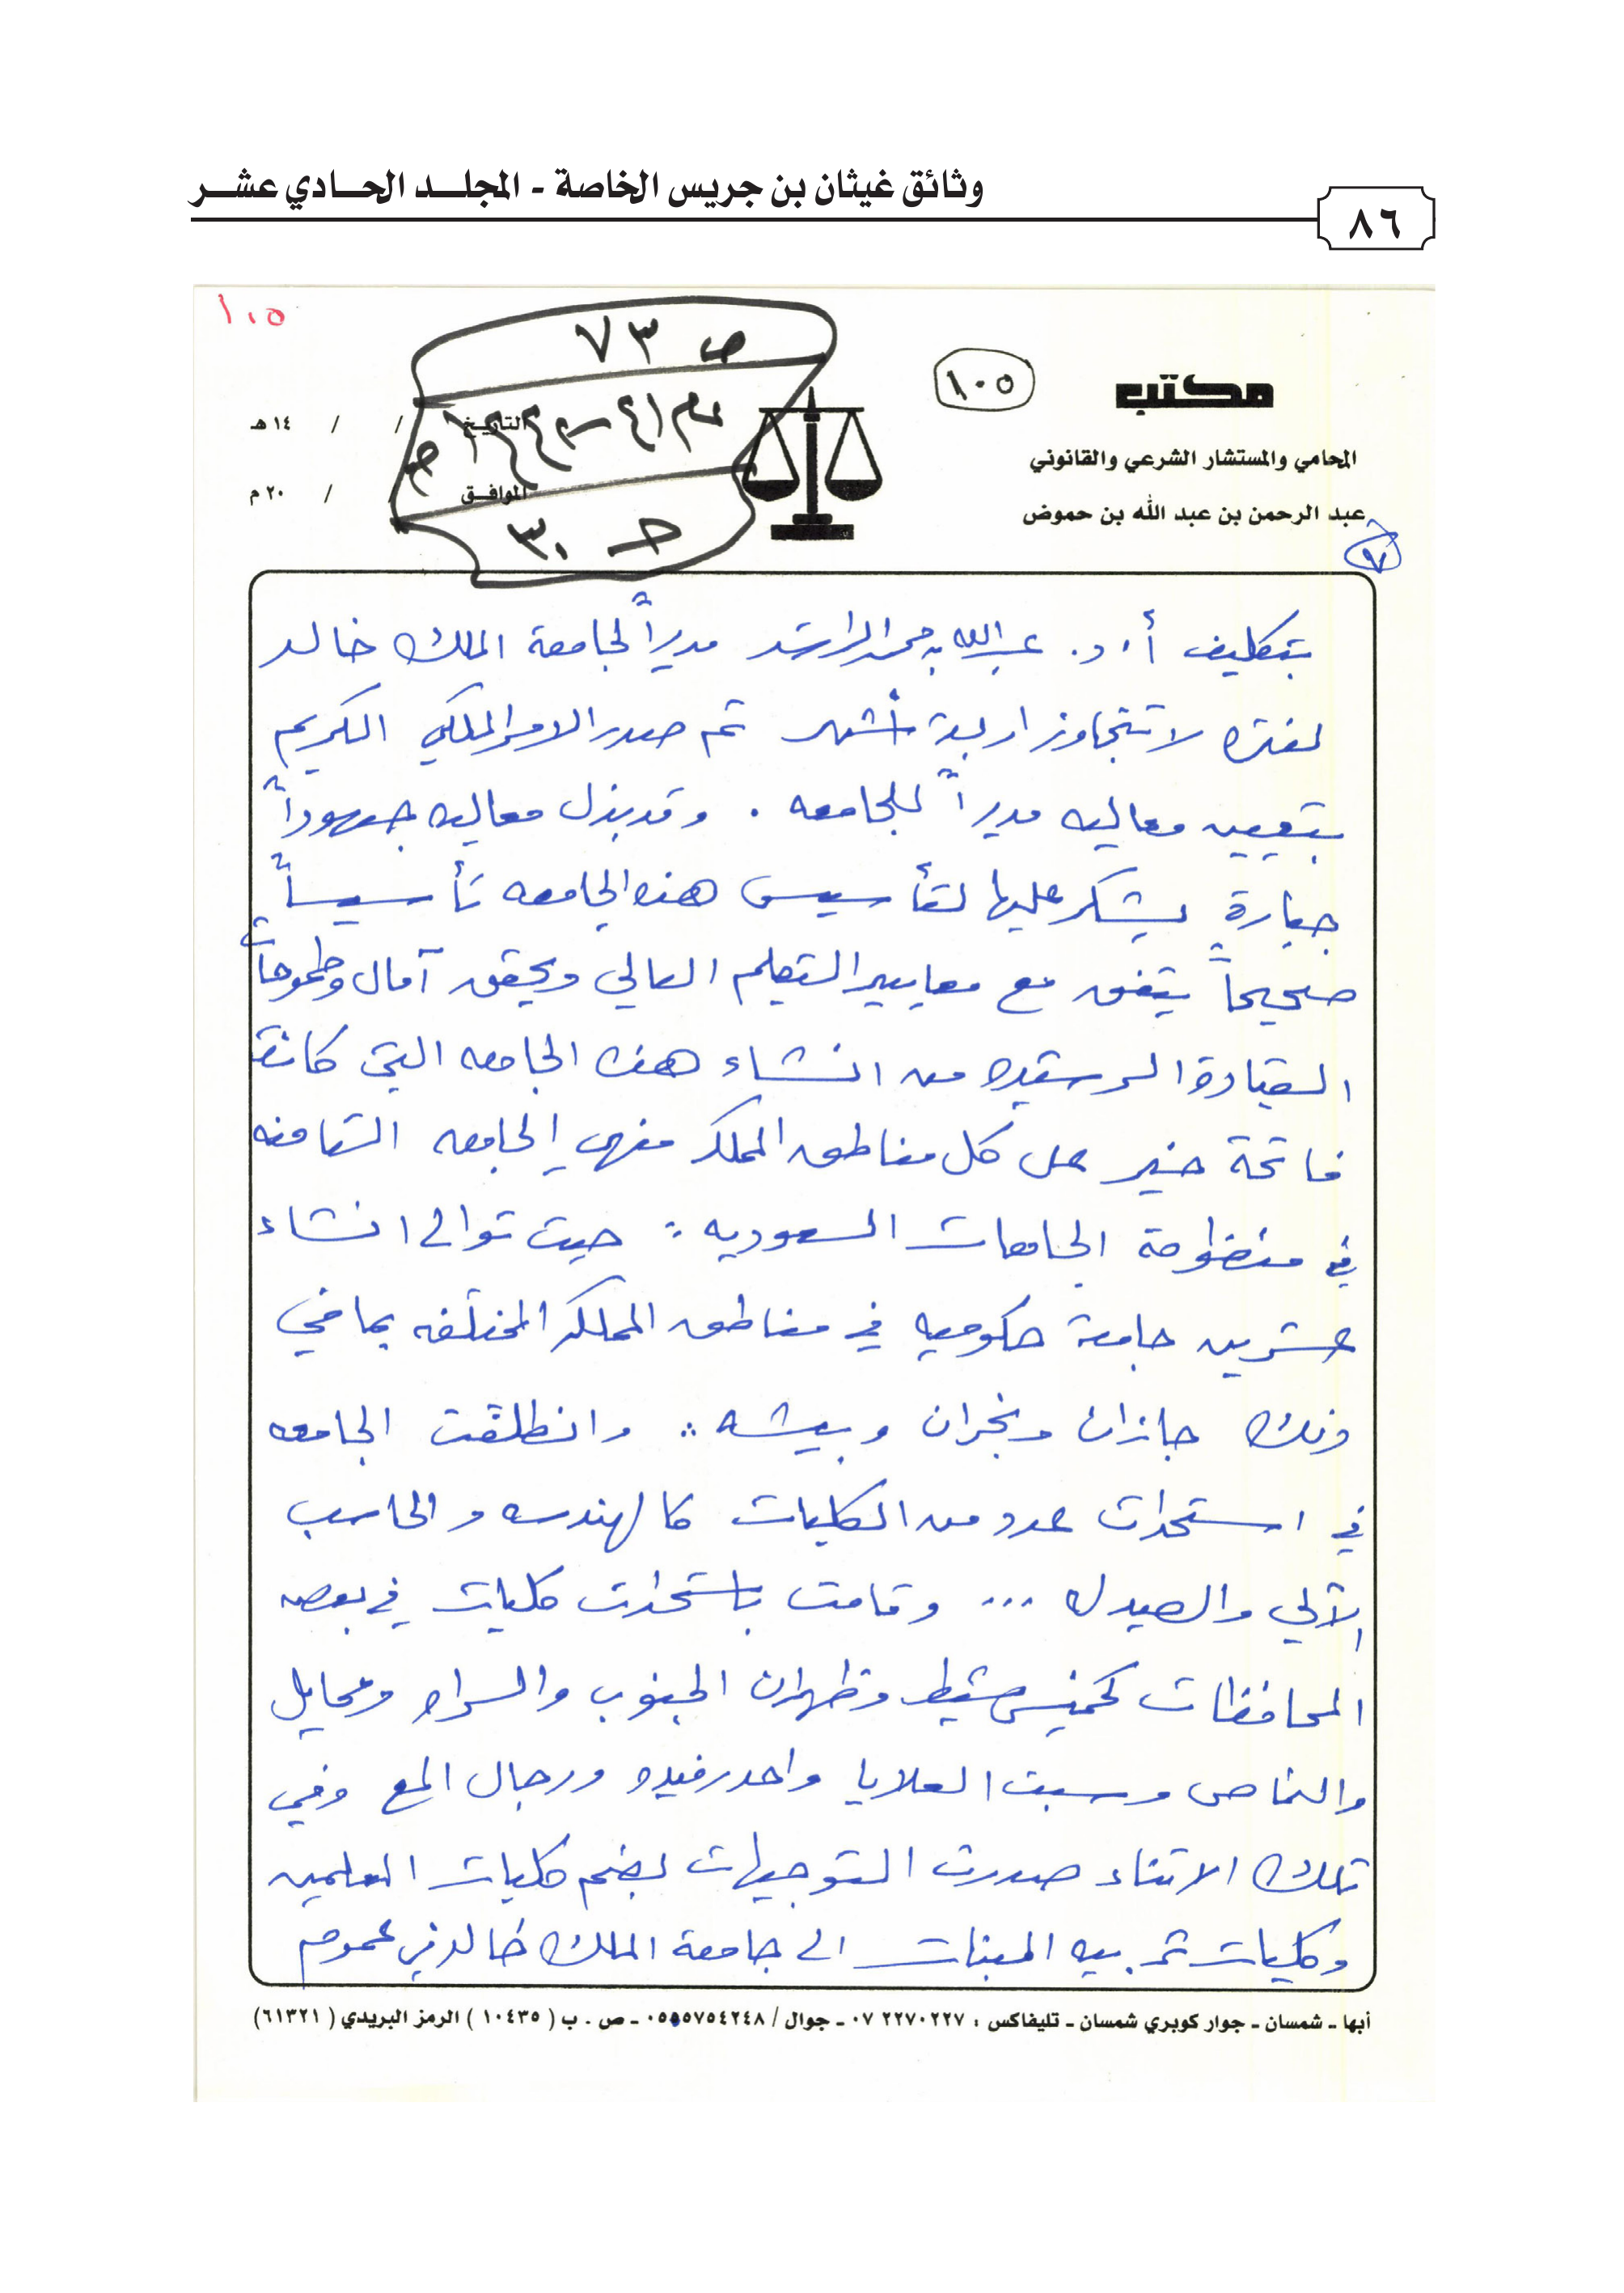 وثائق غيثان بن جريس الخاصة - المجلد الحادي عشر
٨٦
١٠٥
ص ٧٣
١٠٥
مكتب
المحامي والمستشار الشرعي والقانوني
عبد الرحمن بن عبد الله بن حموض
التاريخ / / ١٤هـ
الموافق / / ٢٠م
عام ٤١-
حـ ٣٠
بتكليف أ.د. عبدالله بن محمد الراشد مديراً لجامعة الملك خالد
لفتره لا تتجاوز اربعة أشهر ثم صدر الامر الملكي الكريم
بتعيين معاليه مديراً للجامعه . وقد بذل معاليه جهوداً
جبارة يشكر عليها لتأسيس هذه الجامعه تأسيساً
صحيحاً يتفق مع معايير التعليم العالي ويحقق آمال وطموحات
القيادة الرشيده من انشاء هذه الجامعه التي كانت
فاتحة خير على كل مناطق المملكه فهي الجامعه الثامنه
في منظومة الجامعات السعوديه : حيث توالى انشاء
عشرين جامعة حكوميه في مناطق المملكه المختلفه بما في
ذلك جازان ونجران وبيشه : وانطلقت الجامعه
في استحداث عدد من الكليات كالهندسه والحاسب
الآلي والصيدله ... وقامت باستحداث كليات في بعض
المحافظات كخميس مشيط وظهران الجنوب والسراه ومحايل
والنماص وسبت العلايا واحد رفيده ورجال المع وفي
تلك الاثناء صدرت التوجيهات بضم كليات المعلمين
وكليات تربيه البنات الى جامعة الملك خالد في عموم
أبها ـ شمسان ـ جوار كوبري شمسان ـ تليفاكس : ٢٢٧٠٢٢٧ ٠٧ ـ جوال / ٠٥٥٥٧٥٤٢٤٨ ـ ص . ب ( ١٠٤٣٥ ) الرمز البريدي ( ٦١٣٢١ )